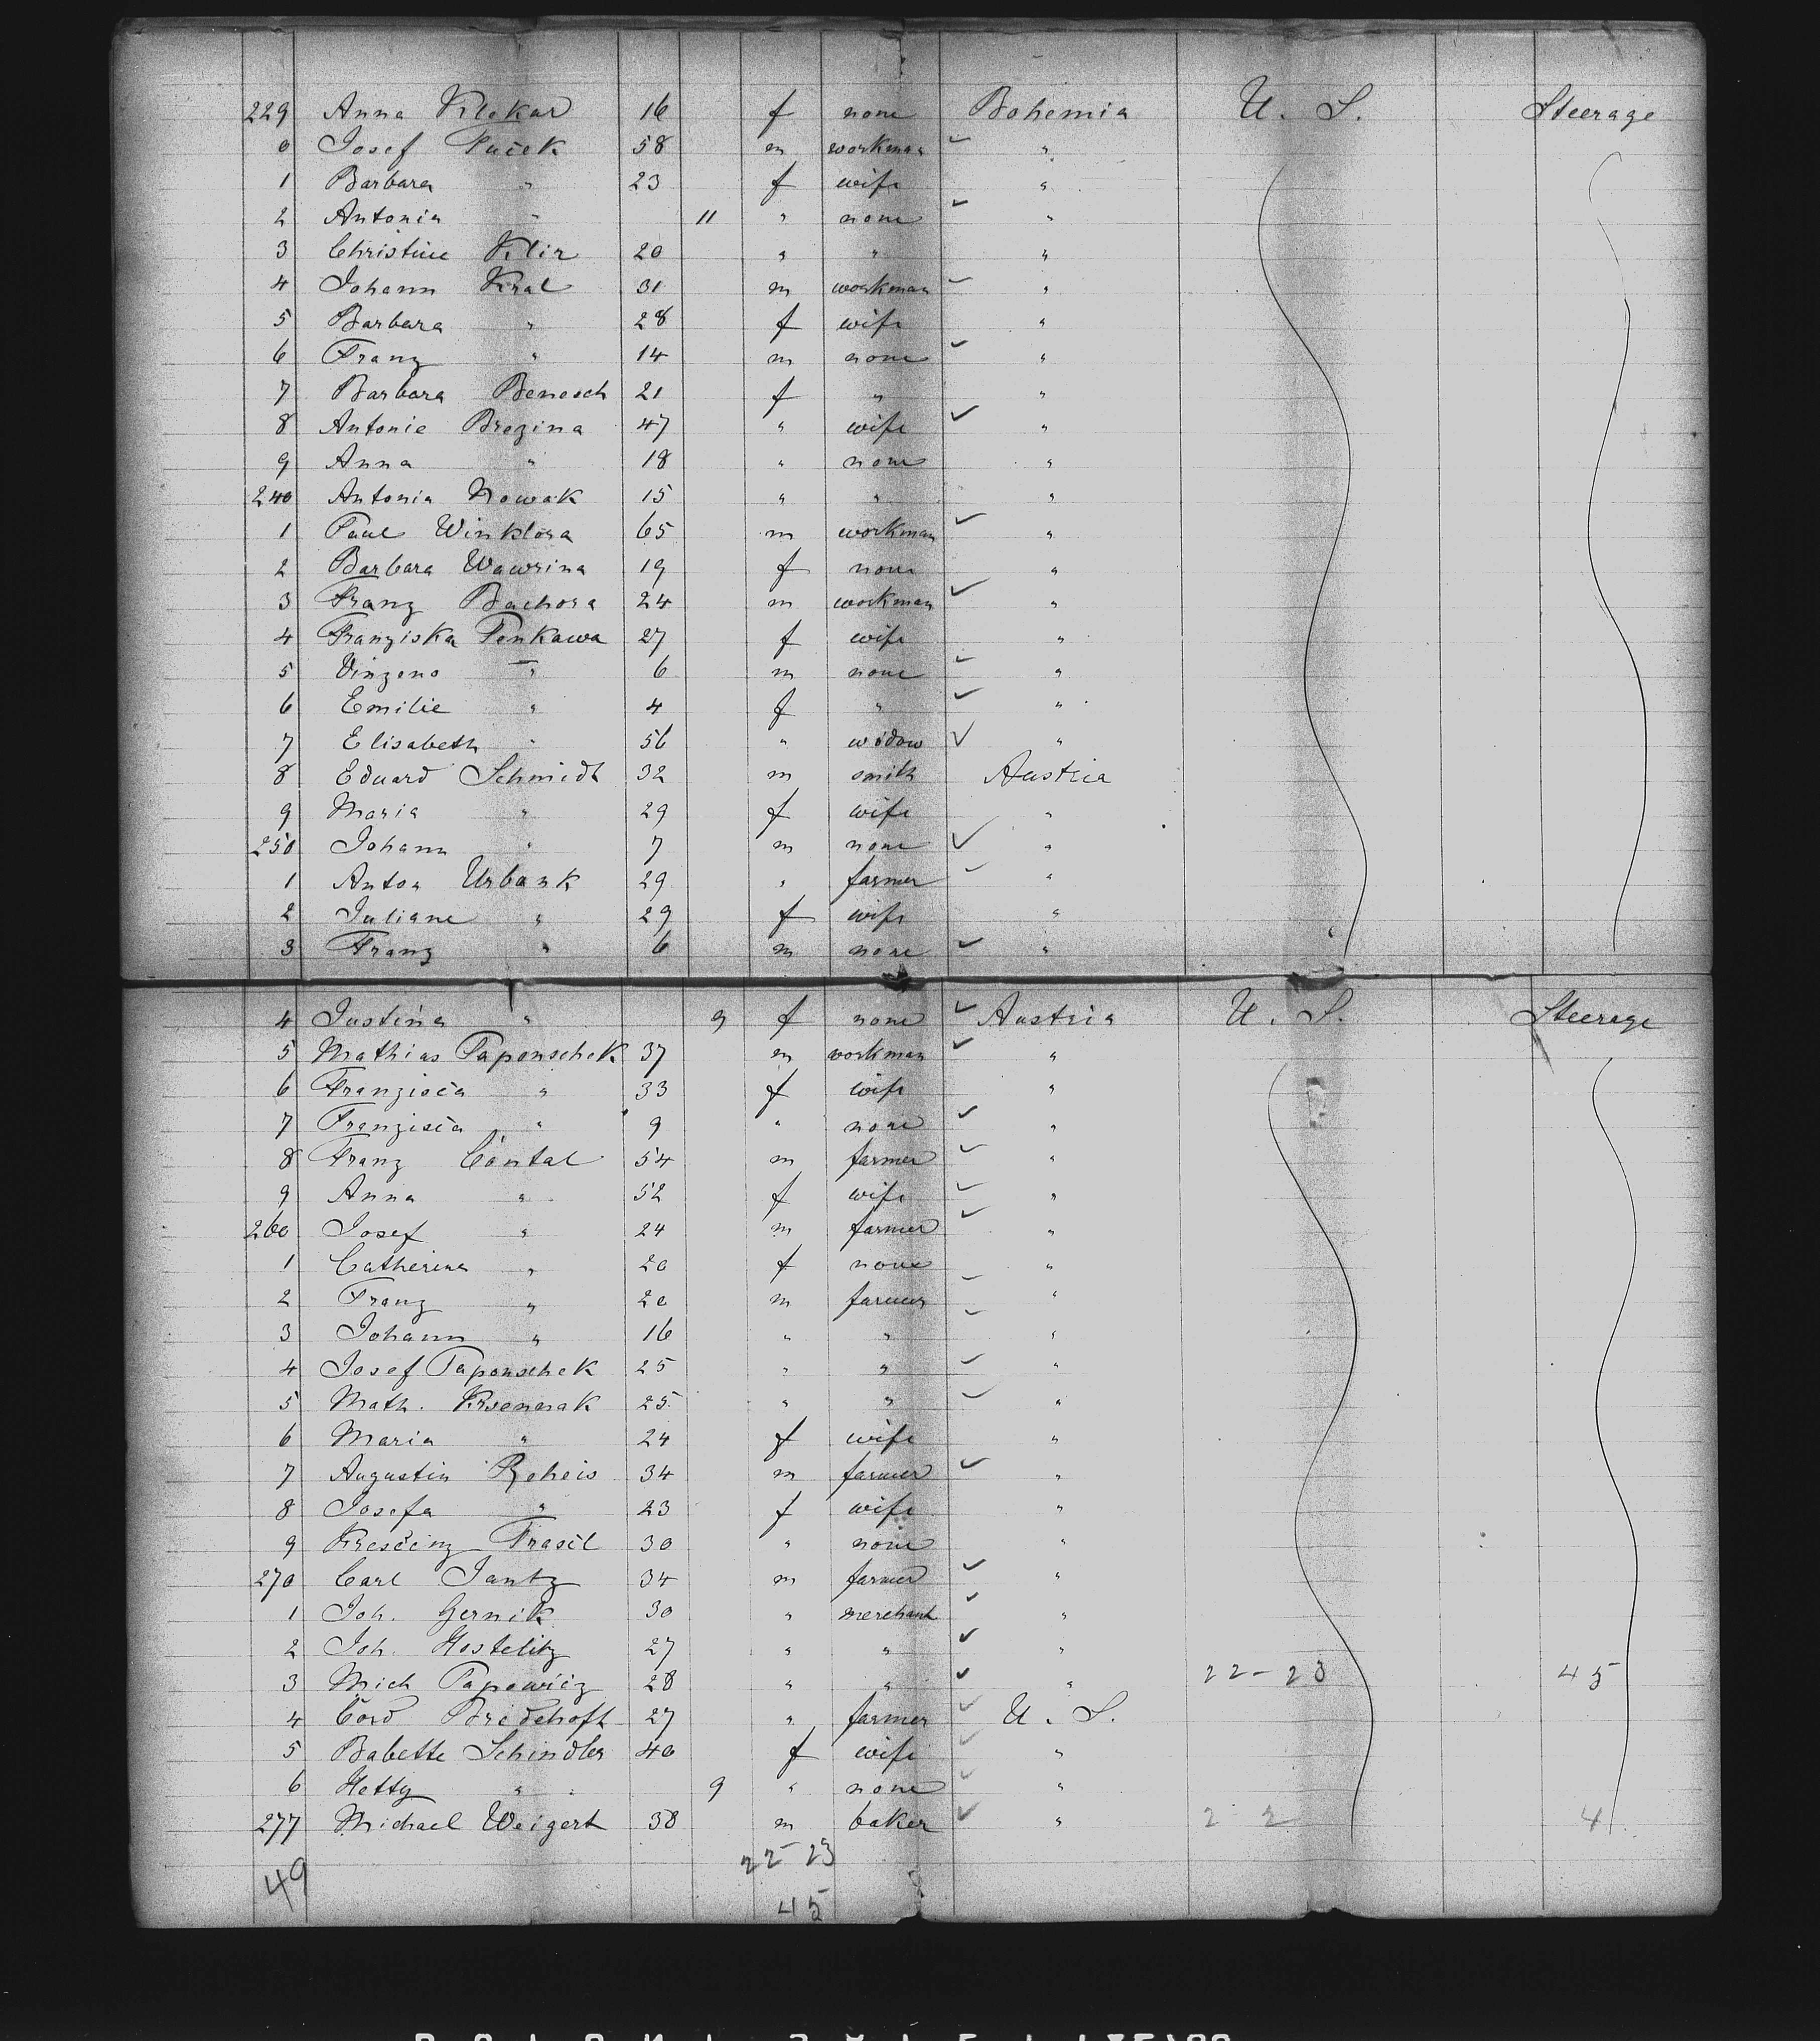 229 Anna Klokar 16 f none Bohemia U. S. Steerage
0 Josef Puček 58 m workman "
1 Barbara " 23 f wife "
2 Antonia " 11 " none "
3 Christine Klir 20 " " "
4 Johann Kral 31 m workman "
5 Barbara " 28 f wife "
6 Franz " 14 m none "
7 Barbara Benesch 21 f " "
8 Antonie Brezina 47 " wife "
9 Anna " 18 " none "
240 Antonia Nowak 15 " " "
1 Paul Winklöra 65 m workman "
2 Barbara Wawrina 19 f none "
3 Franz Bachora 24 m workman "
4 Franziska Penkawa 27 f wife "
5 Vinzens " 6 m none "
6 Emilie " 4 f " "
7 Elisabeth " 56 " widow "
8 Eduard Schmidt 32 m smith Austria
9 Maria " 29 f wife "
250 Johann " 7 m none "
1 Anton Urbank 29 " farmer "
2 Juliane " 29 f wife "
3 Franz " 6 m none "
4 Justina " 9 f none Austria U. S. Steerage
5 Mathias Paponschek 37 m workman "
6 Franzisca " 33 f wife "
7 Franzisca " 9 " none "
8 Franz Contal 54 m farmer "
9 Anna " 52 f wife "
260 Josef " 24 m farmer "
1 Catherina " 20 f none "
2 Franz " 20 m farmer "
3 Johann " 16 " " "
4 Josef Paponschek 25 " " "
5 Math. 25 " " "
6 Maria " 24 f wife "
7 Augustin Reheis 34 m farmer "
8 Josefa " 23 f wife "
9 Krescenz Frasil 30 " none "
270 Carl Jantz 34 m farmer "
1 Joh. Gernik 30 " merchant "
2 Joh. Hostelitz 27 " " "
3 Mich Papowicz 28 " " " 22-23 45
4 Cord Bredehoft 27 " farmer U. S.
5 Babette Schindler 40 f wife "
6 Hetty " 9 " none "
277 Michael Weigert 38 m baker " 2 2 4
22 23
49
45